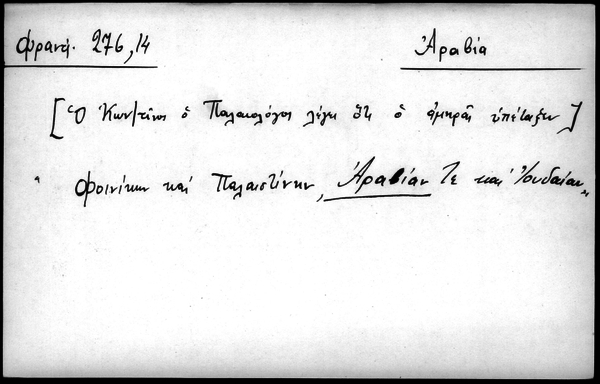 Φραντ. 276,14
Ἀραβία
[Ὁ Κων/τῖνος ὁ Παλαιολόγος λέγει ὅτι ὁ ἀμηρᾶς ὑπέταξεν]
"Φοινίκην καὶ Παλαιστίνην, Ἀραβίαν τε καὶ Ἰουδαίαν"